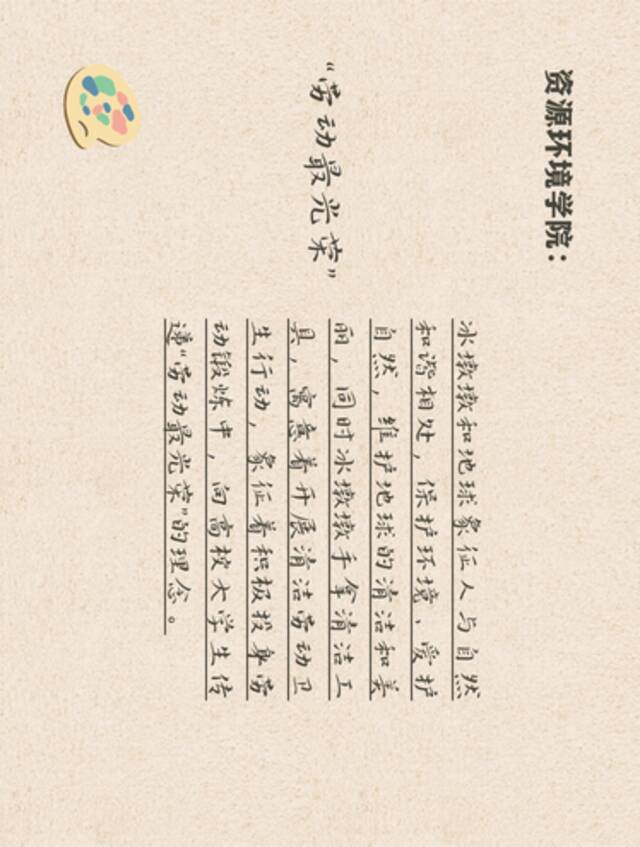 资源环境学院：
“劳动最光荣”
冰墩墩和地球象征人与自然
和谐相处，保护环境、爱护
自然，维护地球的清洁和美
丽，同时冰墩墩手拿清洁工
具，寓意着开展清洁劳动卫
生行动，象征着积极投身劳
动锻炼中，向高校大学生传
递“劳动最光荣”的理念。